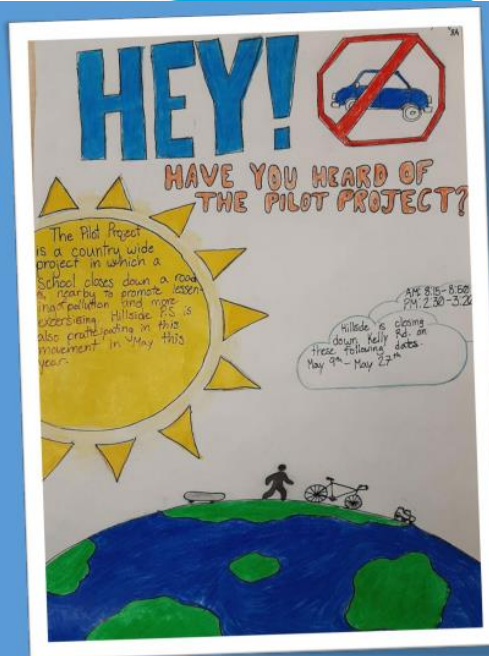 8A
HEY!
HAVE YOU HEARD OF
THE PILOT PROJECT?
The Pilot Project
is a country wide
project in which a
School closes down a road
nearby to promote lessen-
ing pollution and more
excersising. Hillside P.S is
also praticipating in this
movement in May this
year.
AM: 8:15-8:50
PM: 2:30-3:20
Hillside is closing
down Kelly Rd. on
these following dates-
May 9th - May 27th